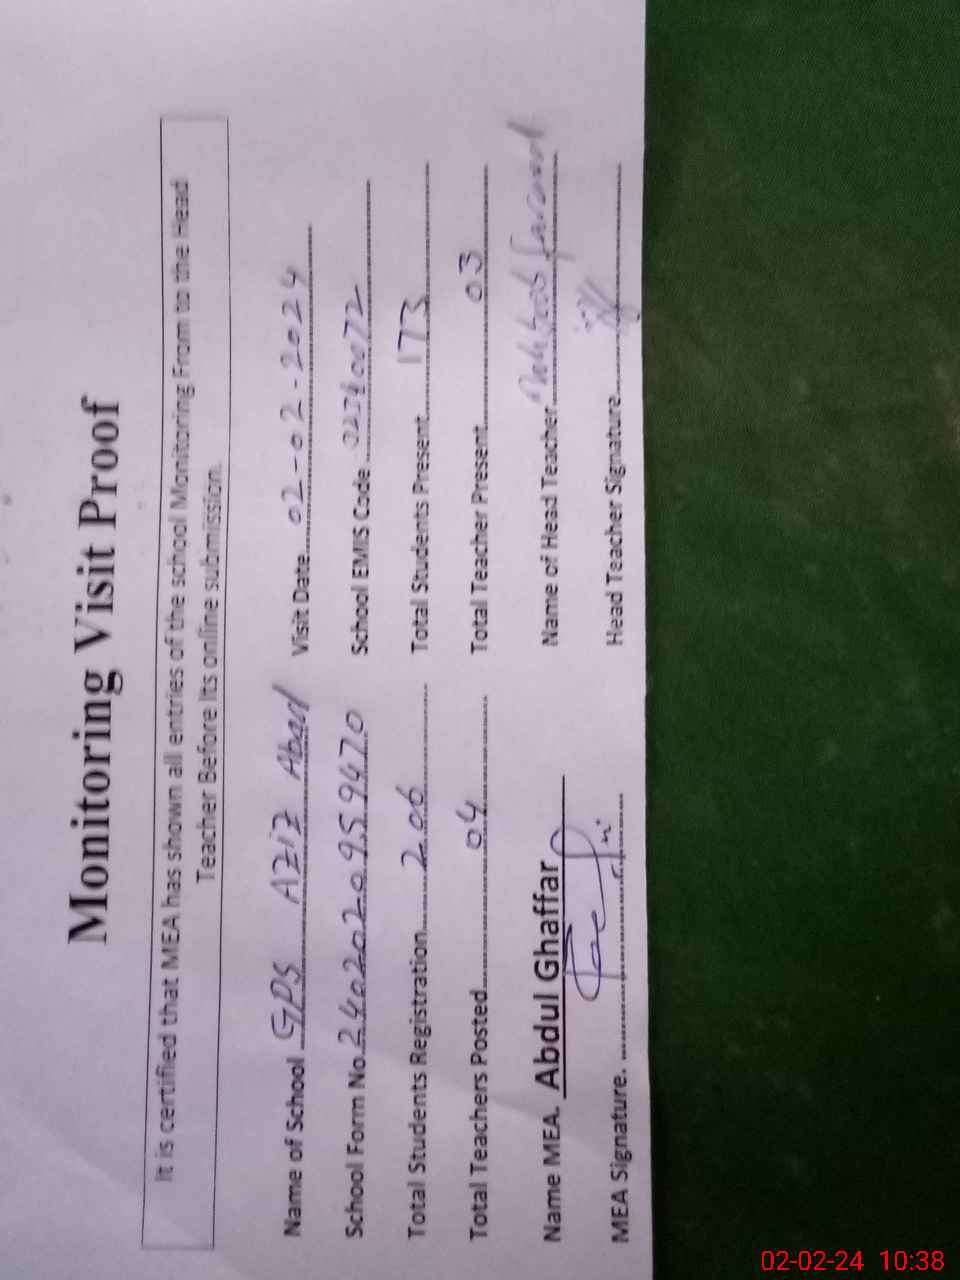 Monitoring Visit Proof
It is certified that MEA has shown all entries of the school Monitoring From to the Head
Teacher Before Its online submission.
Name of School GPS AZIZ Abad Visit Date 02-02-2024
School Form No. 2402020959470 School EMIS Code
Total Students Registration 206 Total Students Present 173
Total Teachers Posted 04 Total Teacher Present 03
Name MEA. Abdul Ghaffar Name of Head Teacher
MEA Signature. Head Teacher Signature
02-02-24 10:38